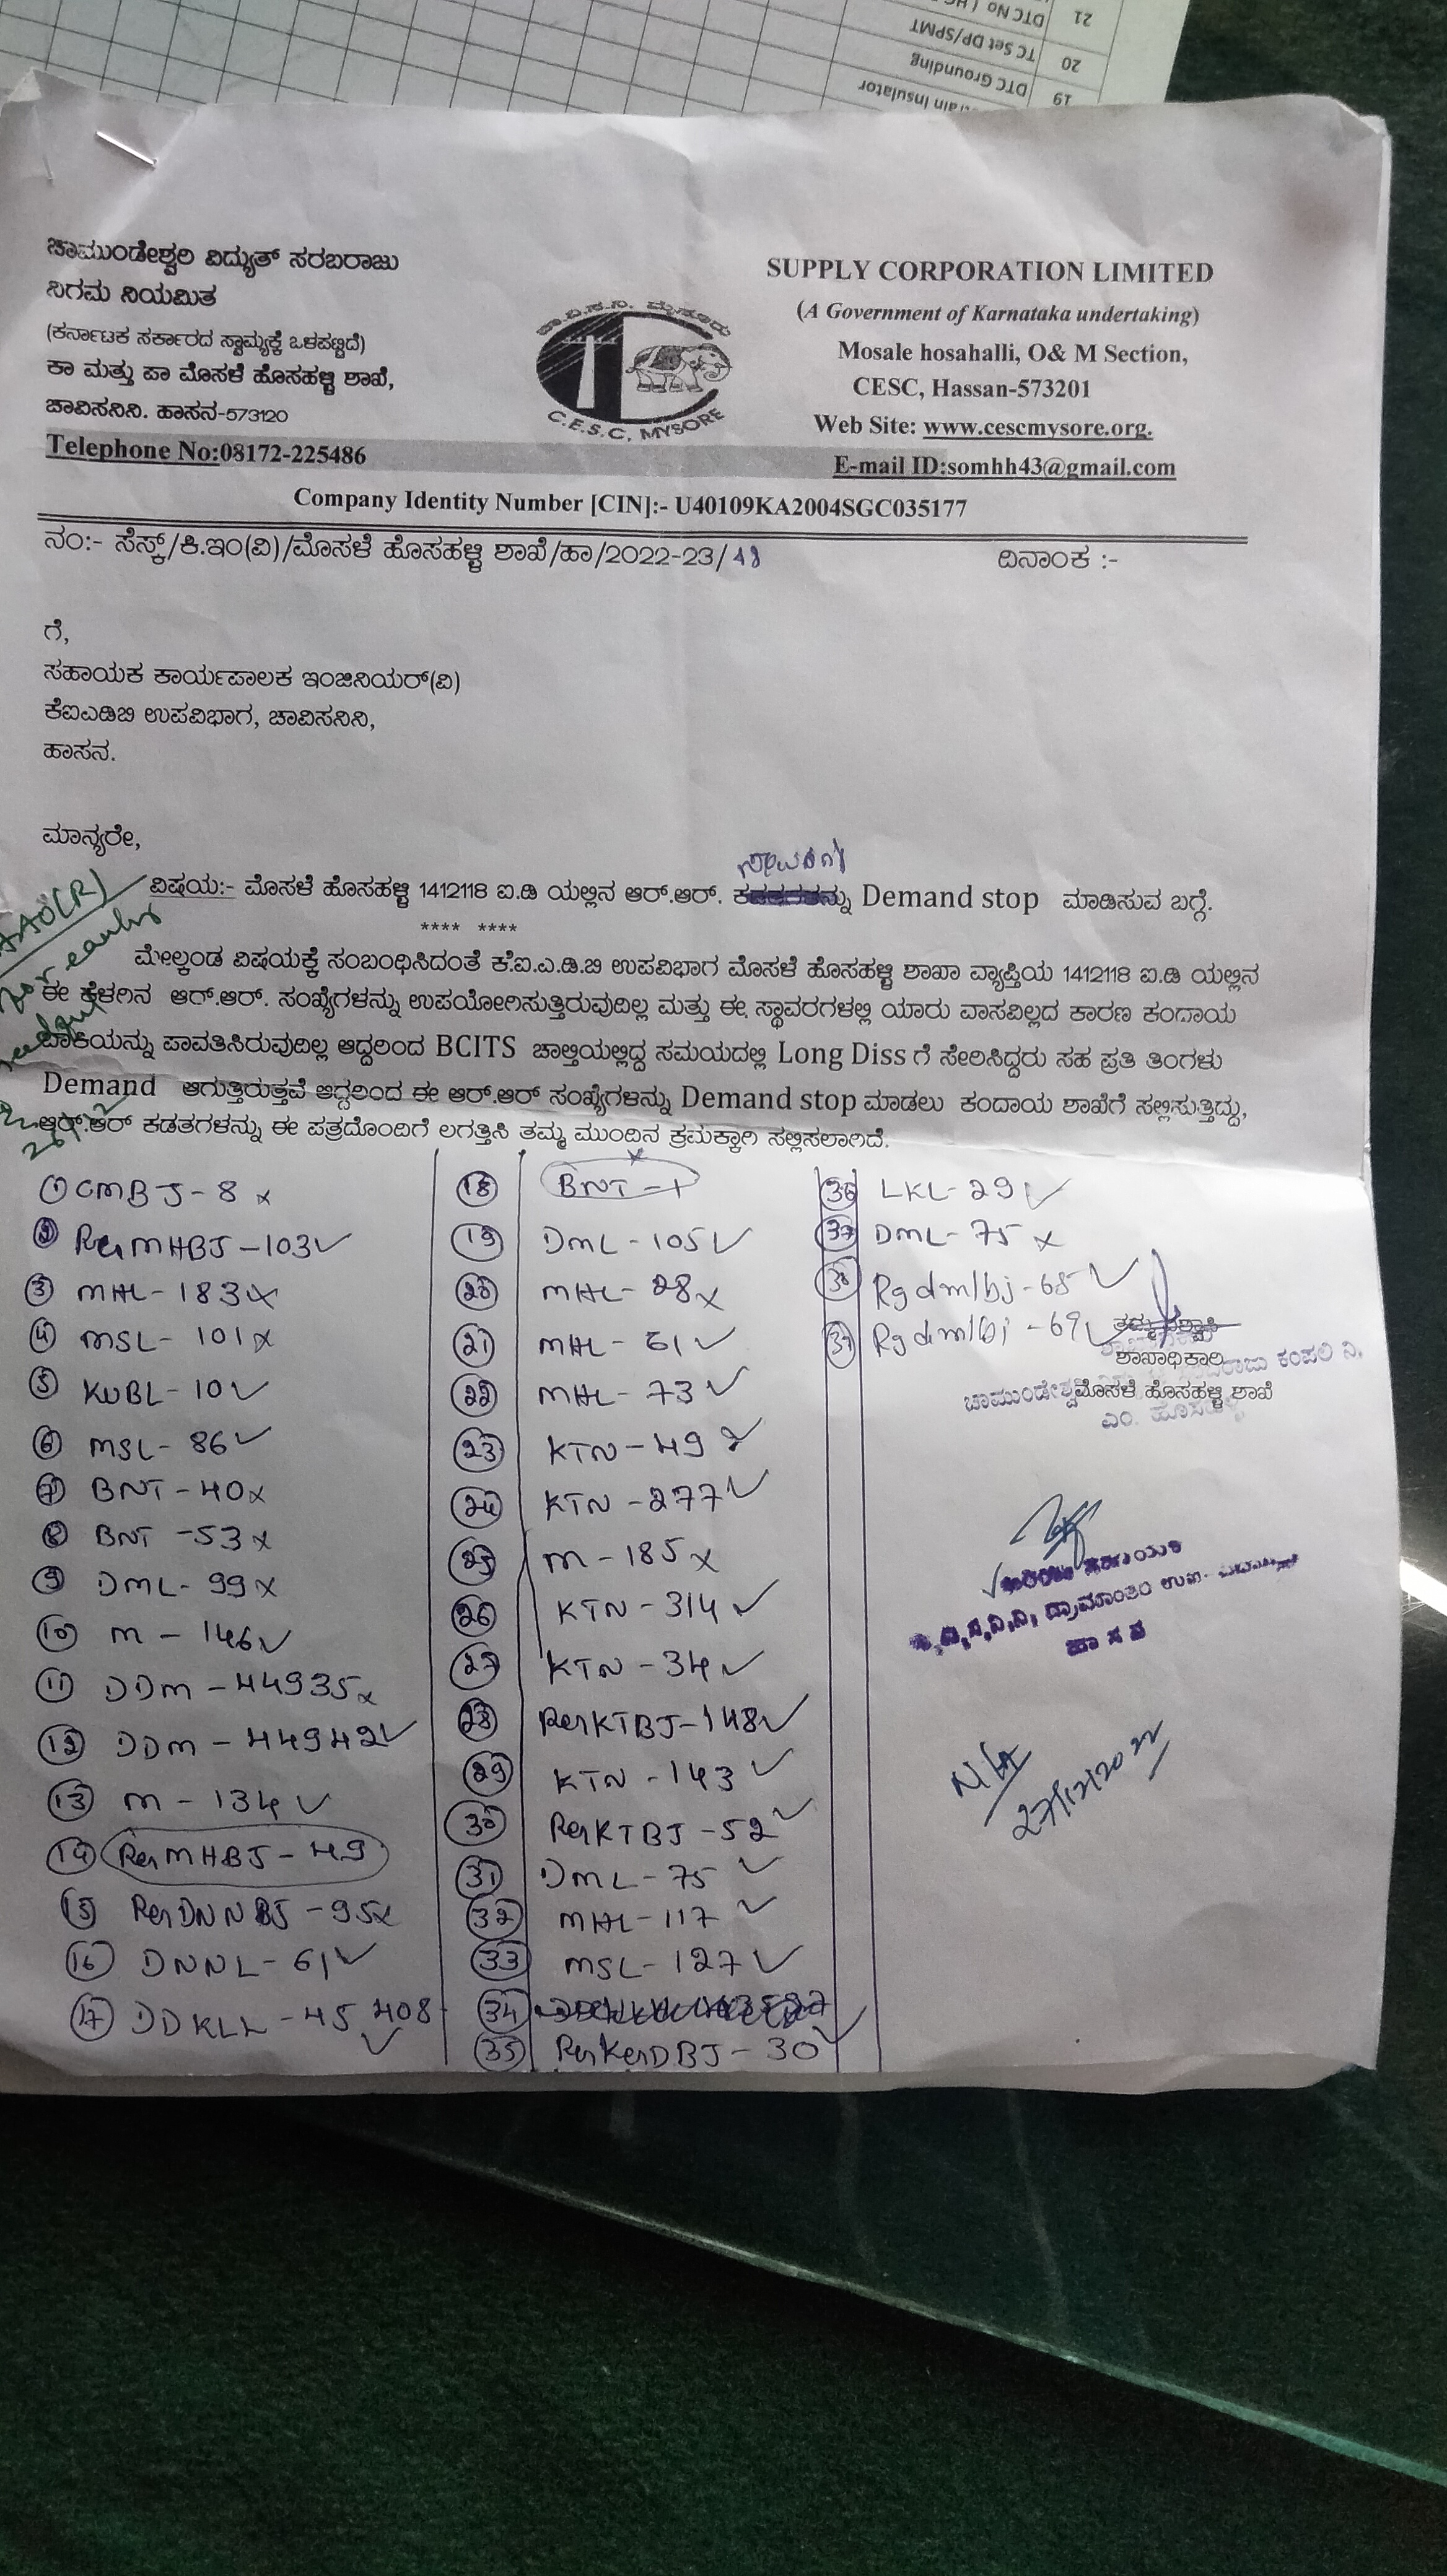 21 DTC No
20 TC Set DP/SPMT
19 DTC Grounding
Insulator
ಚಾಮುಂಡೇಶ್ವರಿ ವಿದ್ಯುತ್ ಸರಬರಾಜು
ನಿಗಮ ನಿಯಮಿತ
(ಕರ್ನಾಟಕ ಸರ್ಕಾರದ ಸ್ವಾಮ್ಯಕ್ಕೆ ಒಳಪಟ್ಟಿದೆ)
ಕಾ ಮತ್ತು ಪಾ ಮೊಸಳೆ ಹೊಸಹಳ್ಳಿ ಶಾಖೆ,
ಚಾವಿಸನಿನಿ. ಹಾಸನ-573120
Telephone No:08172-225486
C.E.S.C, MYSORE
SUPPLY CORPORATION LIMITED
(A Government of Karnataka undertaking)
Mosale hosahalli, O& M Section,
CESC, Hassan-573201
Web Site: www.cescmysore.org.
E-mail ID:somhh43@gmail.com
Company Identity Number [CIN]:- U40109KA2004SGC035177
ನಂ:- ಸೆಸ್ಕ್/ಕಿ.ಇಂ(ವಿ)/ಮೊಸಳೆ ಹೊಸಹಳ್ಳಿ ಶಾಖೆ/ಹಾ/2022-23/ ದಿನಾಂಕ :-
ಗೆ,
ಸಹಾಯಕ ಕಾರ್ಯಪಾಲಕ ಇಂಜಿನಿಯರ್(ವಿ)
ಕೆಐಎಡಿಬಿ ಉಪವಿಭಾಗ, ಚಾವಿಸನಿನಿ,
ಹಾಸನ.
ಮಾನ್ಯರೇ,
ವಿಷಯ:- ಮೊಸಳೆ ಹೊಸಹಳ್ಳಿ 1412118 ಐ.ಡಿ ಯಲ್ಲಿನ ಆರ್.ಆರ್. Demand stop ಮಾಡಿಸುವ ಬಗ್ಗೆ.
**** ****
ಮೇಲ್ಕಂಡ ವಿಷಯಕ್ಕೆ ಸಂಬಂಧಿಸಿದಂತೆ ಕೆ.ಐ.ಎ.ಡಿ.ಬಿ ಉಪವಿಭಾಗ ಮೊಸಳೆ ಹೊಸಹಳ್ಳಿ ಶಾಖಾ ವ್ಯಾಪ್ತಿಯ 1412118 ಐ.ಡಿ ಯಲ್ಲಿನ
ಈ ಕೆಳಗಿನ ಆರ್.ಆರ್. ಸಂಖ್ಯೆಗಳನ್ನು ಉಪಯೋಗಿಸುತ್ತಿರುವುದಿಲ್ಲ ಮತ್ತು ಈ ಸ್ಥಾವರಗಳಲ್ಲಿ ಯಾರು ವಾಸವಿಲ್ಲದ ಕಾರಣ ಕಂದಾಯ
ಬಾಕಿಯನ್ನು ಪಾವತಿಸಿರುವುದಿಲ್ಲ ಆದ್ದರಿಂದ BCITS ಚಾಲ್ತಿಯಲ್ಲಿದ್ದ ಸಮಯದಲ್ಲಿ Long Diss ಗೆ ಸೇರಿಸಿದ್ದರು ಸಹ ಪ್ರತಿ ತಿಂಗಳು
Demand ಆಗುತ್ತಿರುತ್ತವೆ ಆದ್ದರಿಂದ ಈ ಆರ್.ಆರ್ ಸಂಖ್ಯೆಗಳನ್ನು Demand stop ಮಾಡಲು ಕಂದಾಯ ಶಾಖೆಗೆ ಸಲ್ಲಿಸುತ್ತಿದ್ದು,
ಆರ್.ಆರ್ ಕಡತಗಳನ್ನು ಈ ಪತ್ರದೊಂದಿಗೆ ಲಗತ್ತಿಸಿ ತಮ್ಮ ಮುಂದಿನ ಕ್ರಮಕ್ಕಾಗಿ ಸಲ್ಲಿಸಲಾಗಿದೆ.
1 CMBJ-8 x
2 RGMHBJ-103 ✓
3 MHL-183 x
4 MSL-101 x
5 KUBL-10 ✓
6 MSL-86 ✓
7 BNT-40 x
8 BNT-53 x
9 DML-99 x
10 M-146 ✓
11 DDM-44935 x
12 DDM-44942 ✓
13 M-134 ✓
14 RGMHBJ-49
15 RGDNNBJ-95 x
16 DNNL-61 ✓
17 DDKLL-45408 ✓
18 BNT-1 x
19 DML-105 ✓
20 MHL-28 x
21 MHL-61 ✓
22 MHL-73 ✓
23 KTN-49 ✓
24 KTN-277 ✓
25 M-185 x
26 KTN-314 ✓
27 KTN-34 ✓
28 RGKTBJ-148 ✓
29 KTN-143 ✓
30 RGKTBJ-52 ✓
31 DML-75 ✓
32 MHL-117 ✓
33 MSL-127 ✓
34
35 RGKGDBJ-30 ✓
36 LKL-29 ✓
37 DML-75 x
38 Rgdm/bj-65 ✓
39 Rgdm/bj-69 ✓
ತಮ್ಮ ವಿಶ್ವಾಸಿ
ಶಾಖಾಧಿಕಾರಿ
ಮೊಸಳೆ ಹೊಸಹಳ್ಳಿ ಶಾಖೆ
ಹಾಸನ
27/12/2022